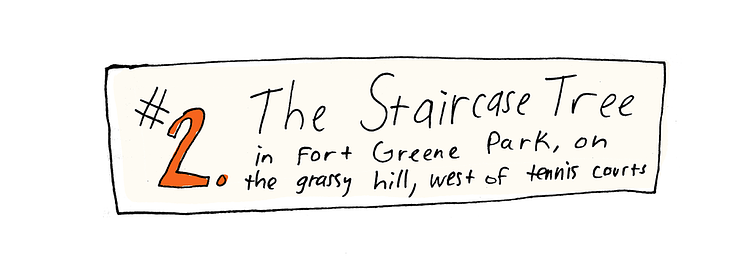 #2. The Staircase Tree
in Fort Greene Park, on
the grassy hill, west of tennis courts